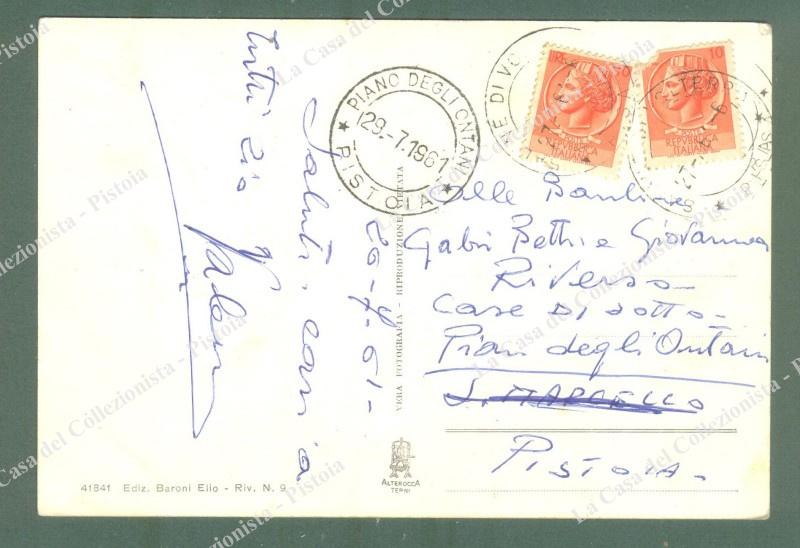 Saluti cari a
tutti zio
26-7-61-
PIANO DEGLI ONTANI
29.-7.1961
PISTOIA
LIRE
10
REPVBBLICA
ITALIANA
10
REPVBBLICA
ITALIANA
Alle Bambine
Gabri Betti e Giovanna
Riverso
CASE DI SOTTO-
Pian degli Ontani
S. MARCELLO
PISTOIA-
VERA FOTOGRAFIA - RIPRODUZIONE VIETATA
ALTEROCCA
TERNI
41841 Ediz. Baroni Elio - Riv. N. 9
La Casa del Collezionista - Pistoia